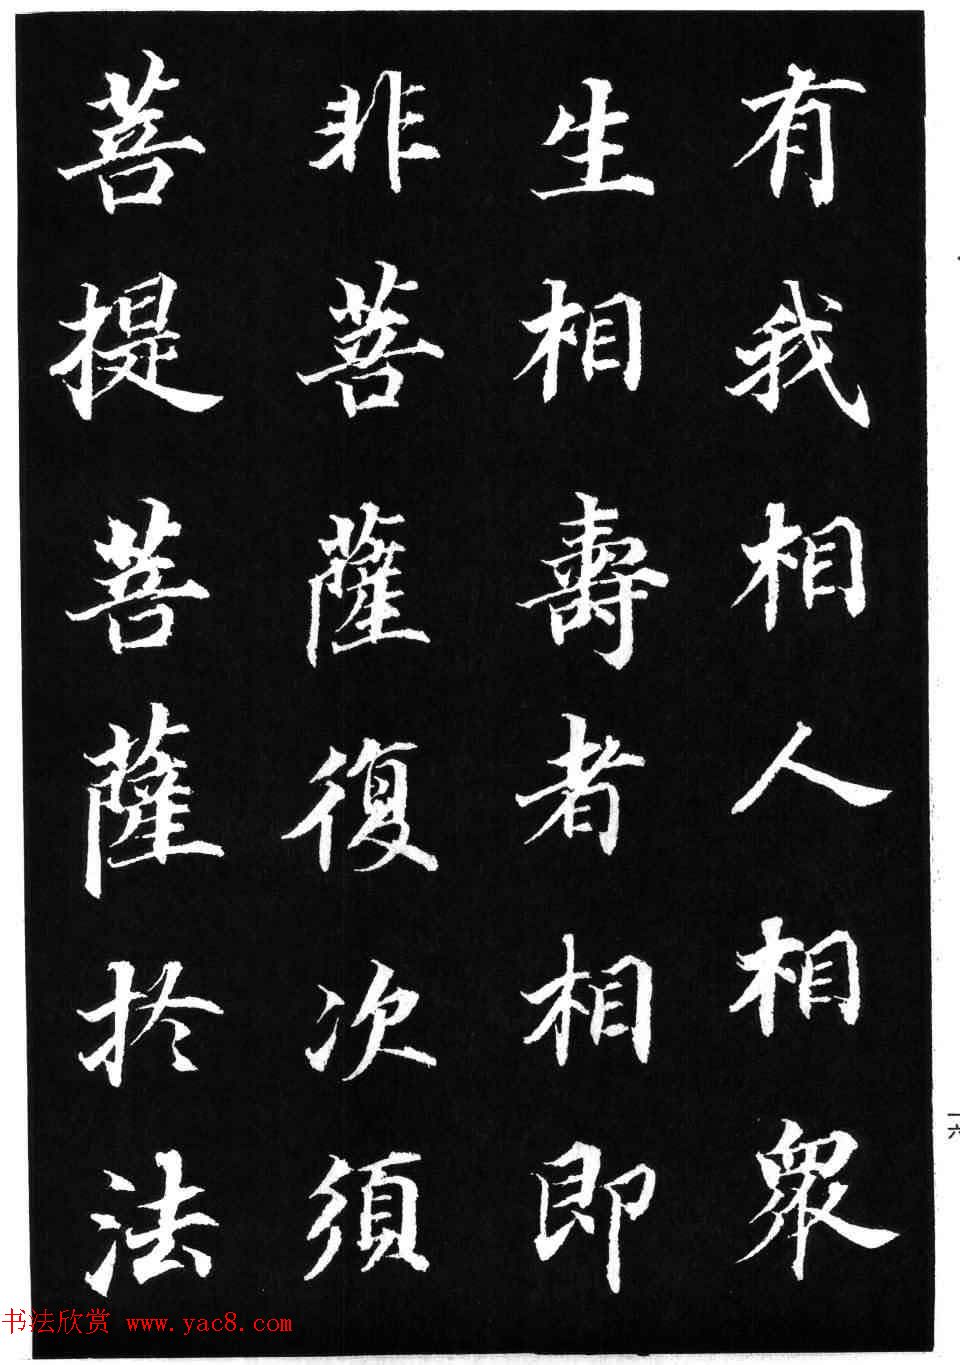 有我相人相眾
生相壽者相即
非菩薩復次須
菩提菩薩於法
一六
书法欣赏 www.yac8.com